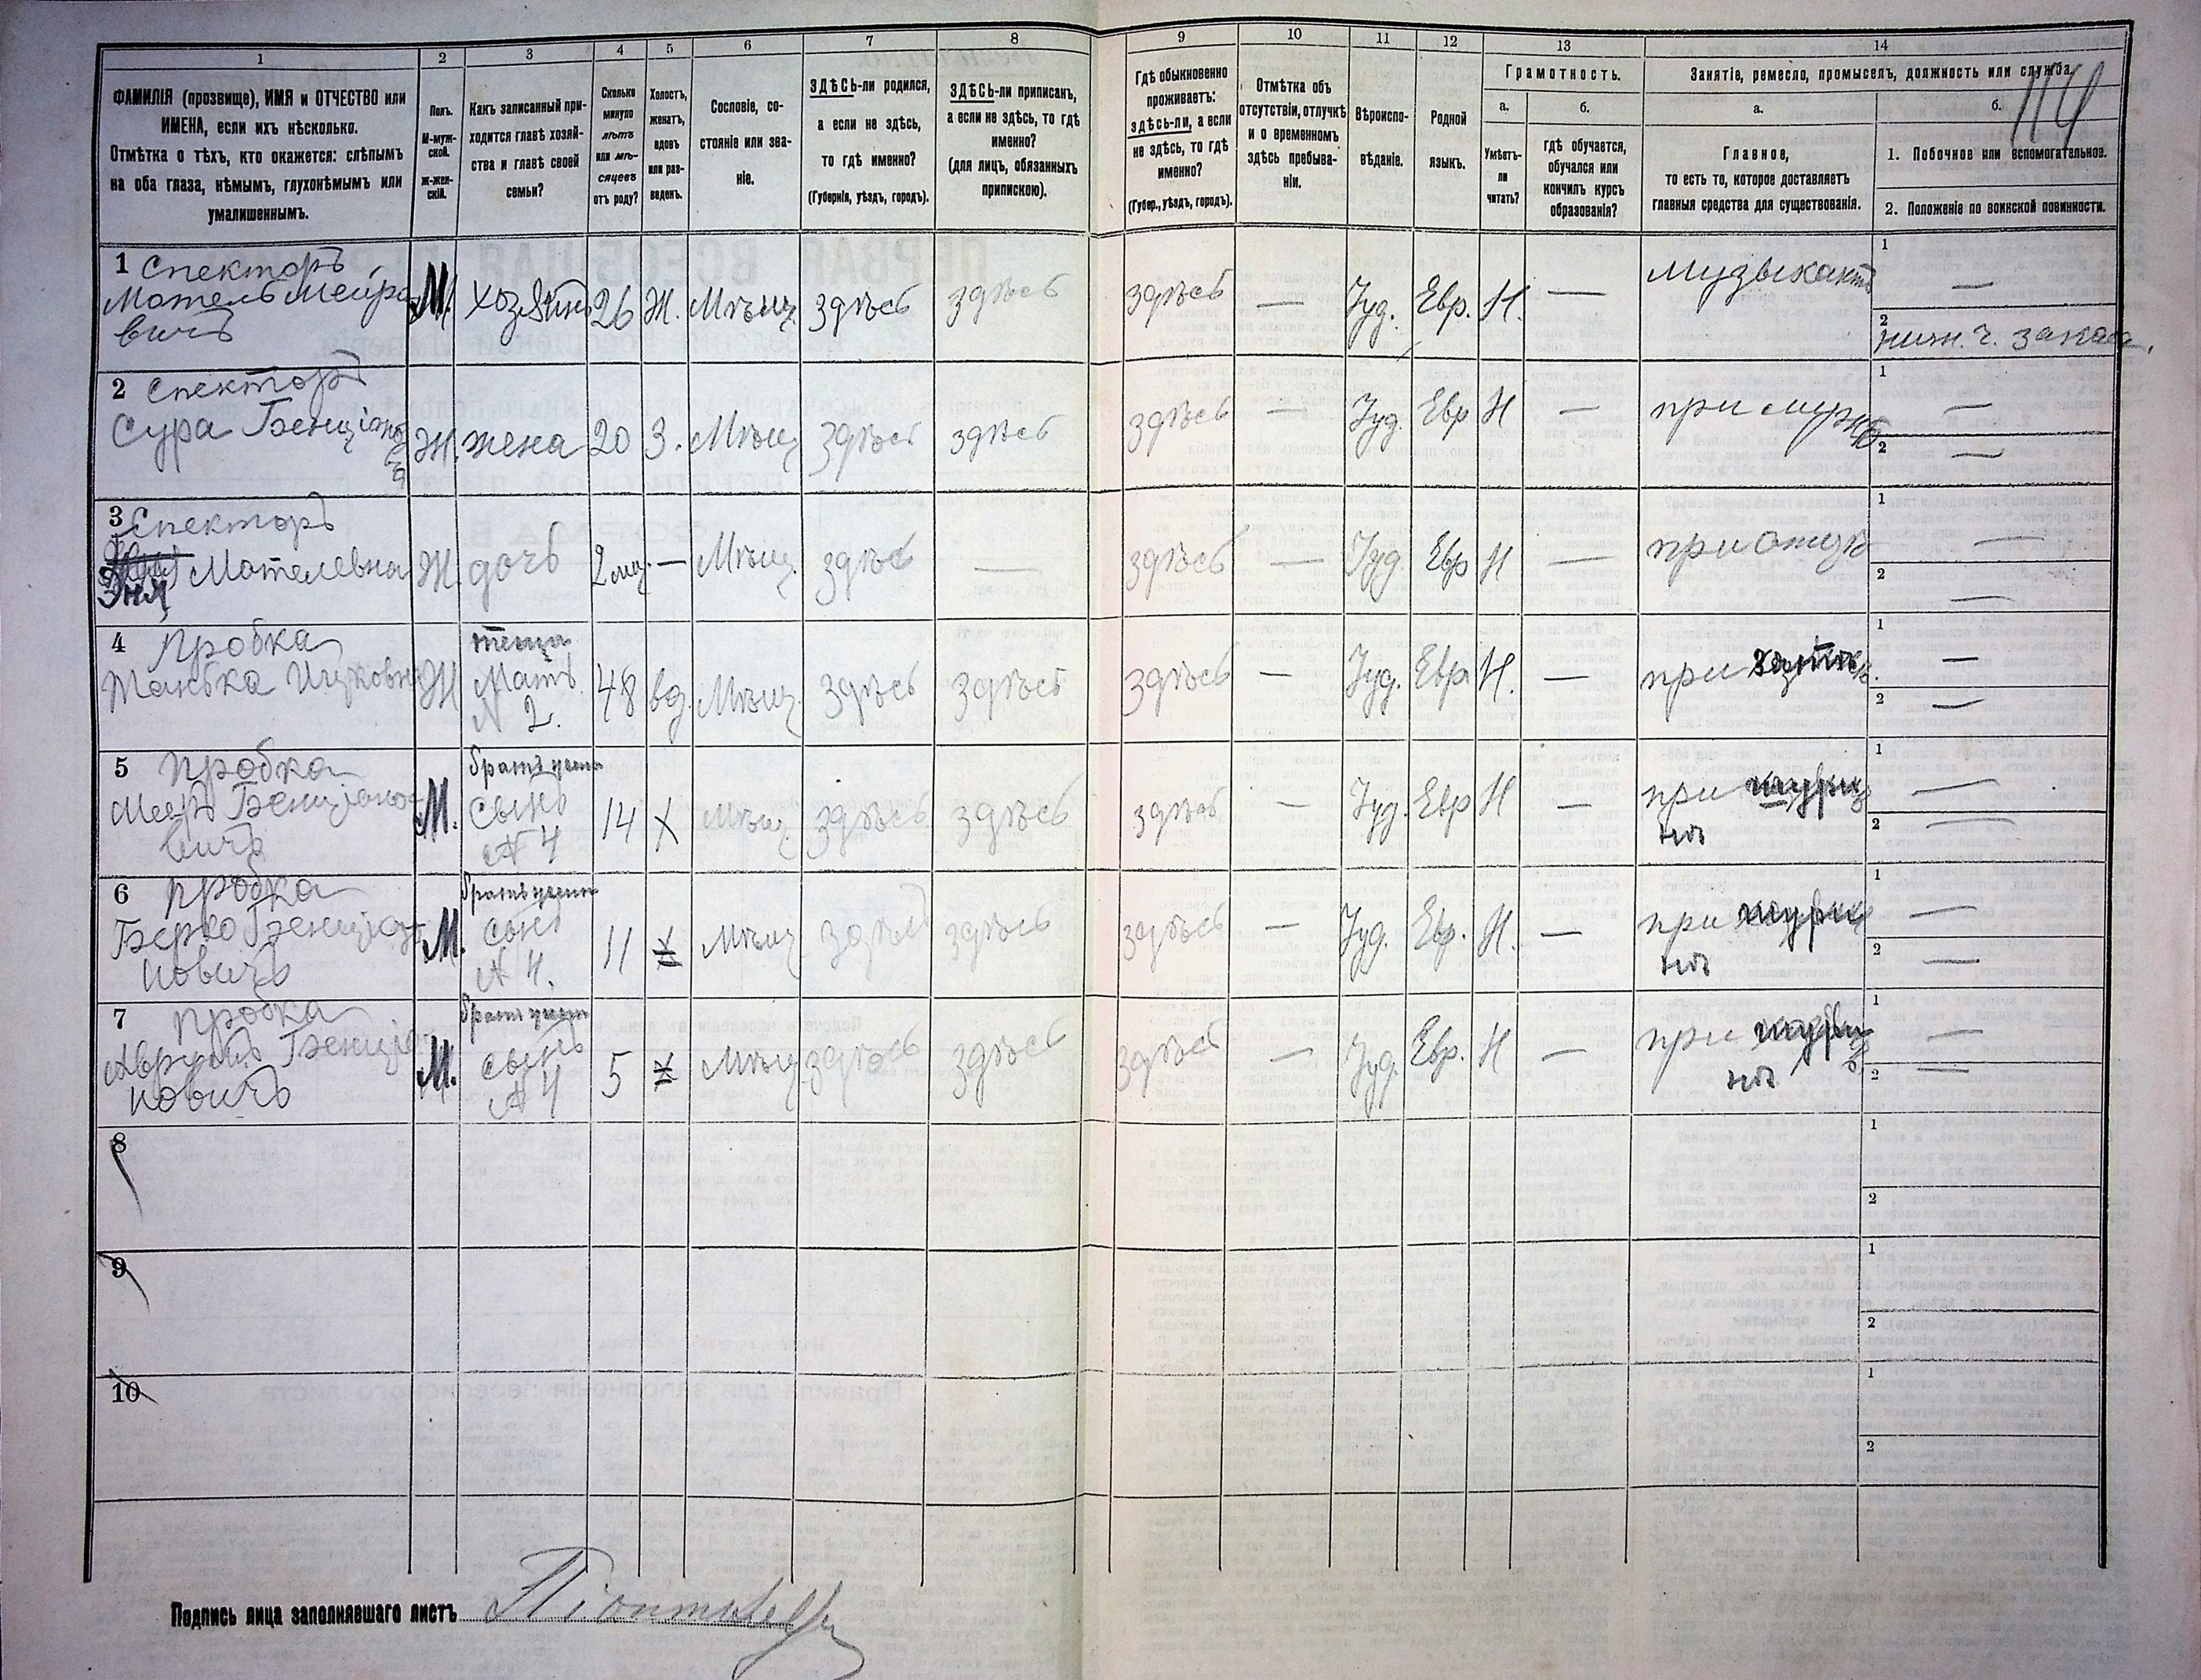 1 2 3 4 5 6 7 8 9 10 11 12 13 14
ФАМИЛІЯ (прозвище), ИМЯ и ОТЧЕСТВО или
ИМЕНА, если ихъ нѣсколько.
Отмѣтка о тѣхъ, кто окажется: слѣпымъ
на оба глаза, нѣмымъ, глухонѣмымъ или
умалишеннымъ.
Полъ.
М-муж-
ской.
Ж-жен-
скій.
Какъ записанный при-
ходится главѣ хозяй-
ства и главѣ своей
семьи?
Сколько
минуло
лѣтъ
или мѣ-
сяцевъ
отъ роду?
Холостъ,
женатъ,
вдовъ
или раз-
веденъ.
Сословіе, со-
стояніе или зва-
ніе.
ЗДѢСЬ-ли родился,
а если не здѣсь,
то гдѣ именно?
(Губернія, уѣздъ, городъ).
ЗДѢСЬ-ли приписанъ,
а если не здѣсь, то гдѣ
именно?
(для лицъ, обязанныхъ
припискою).
Гдѣ обыкновенно
проживаетъ:
здѣсь-ли, а если
не здѣсь, то гдѣ
именно?
(Губер., уѣздъ, городъ).
Отмѣтка объ
отсутствіи, отлучкѣ
и о временномъ
здѣсь пребыва-
ніи.
Вѣроиспо-
вѣданіе.
Родной
языкъ.
Грамотность.
а. б.
Умѣетъ-
ли
читать?
гдѣ обучается,
обучался или
кончилъ курсъ
образованія?
Занятіе, ремесло, промыселъ, должность или служба.
114
а. б.
Главное,
то есть то, которое доставляетъ
главныя средства для существованія.
1. Побочное или вспомогательное.
2. Положеніе по воинской повинности.
1 Спекторъ
Мотель Мейро
вичъ
М. хозяинъ 26 Ж. Мѣщ. здѣсь здѣсь здѣсь — Іуд. Евр. Н. — музыкантъ
1 —
2 нижн. ч. запаса.
2 Спекторъ
Сура Бенціонов
Ж. жена 20 З. Мѣщ. здѣсь здѣсь здѣсь — Іуд. Евр Н — при мужѣ
1 —
2 —
3 Спекторъ
Эня Мотелевна
Ж. дочь 2 мц. — Мѣщ. здѣсь — здѣсь — Іуд. Евр Н — при отцѣ
1 —
2 —
4 Пробка
Ицковна
Ж теща
Мать
N 2.
48 вд. Мѣщ. здѣсь здѣсь здѣсь — Іуд. Евр Н. — при
1 —
2 —
5 Пробка
Мееръ Бенціоно
вичъ
М. братъ
Сынъ
N 4
14 Х Мѣщ. здѣсь здѣсь здѣсь — Іуд. Евр Н — при
1 —
2 —
6 Пробка
Берко Бенціо
новичъ
М. братъ
Сынъ
N 4.
11 Х Мѣщ здѣсь здѣсь здѣсь — Іуд. Евр. Н. — при
1 —
2 —
7 Пробка
Аврумъ Бенціо
новичъ
М. братъ
сынъ
N 4
5 Х Мѣщ здѣсь здѣсь здѣсь — Іуд. Евр. Н — при
1 —
2 —
8
1
2
9
1
2
10
1
2
Подпись лица заполнявшаго листъ